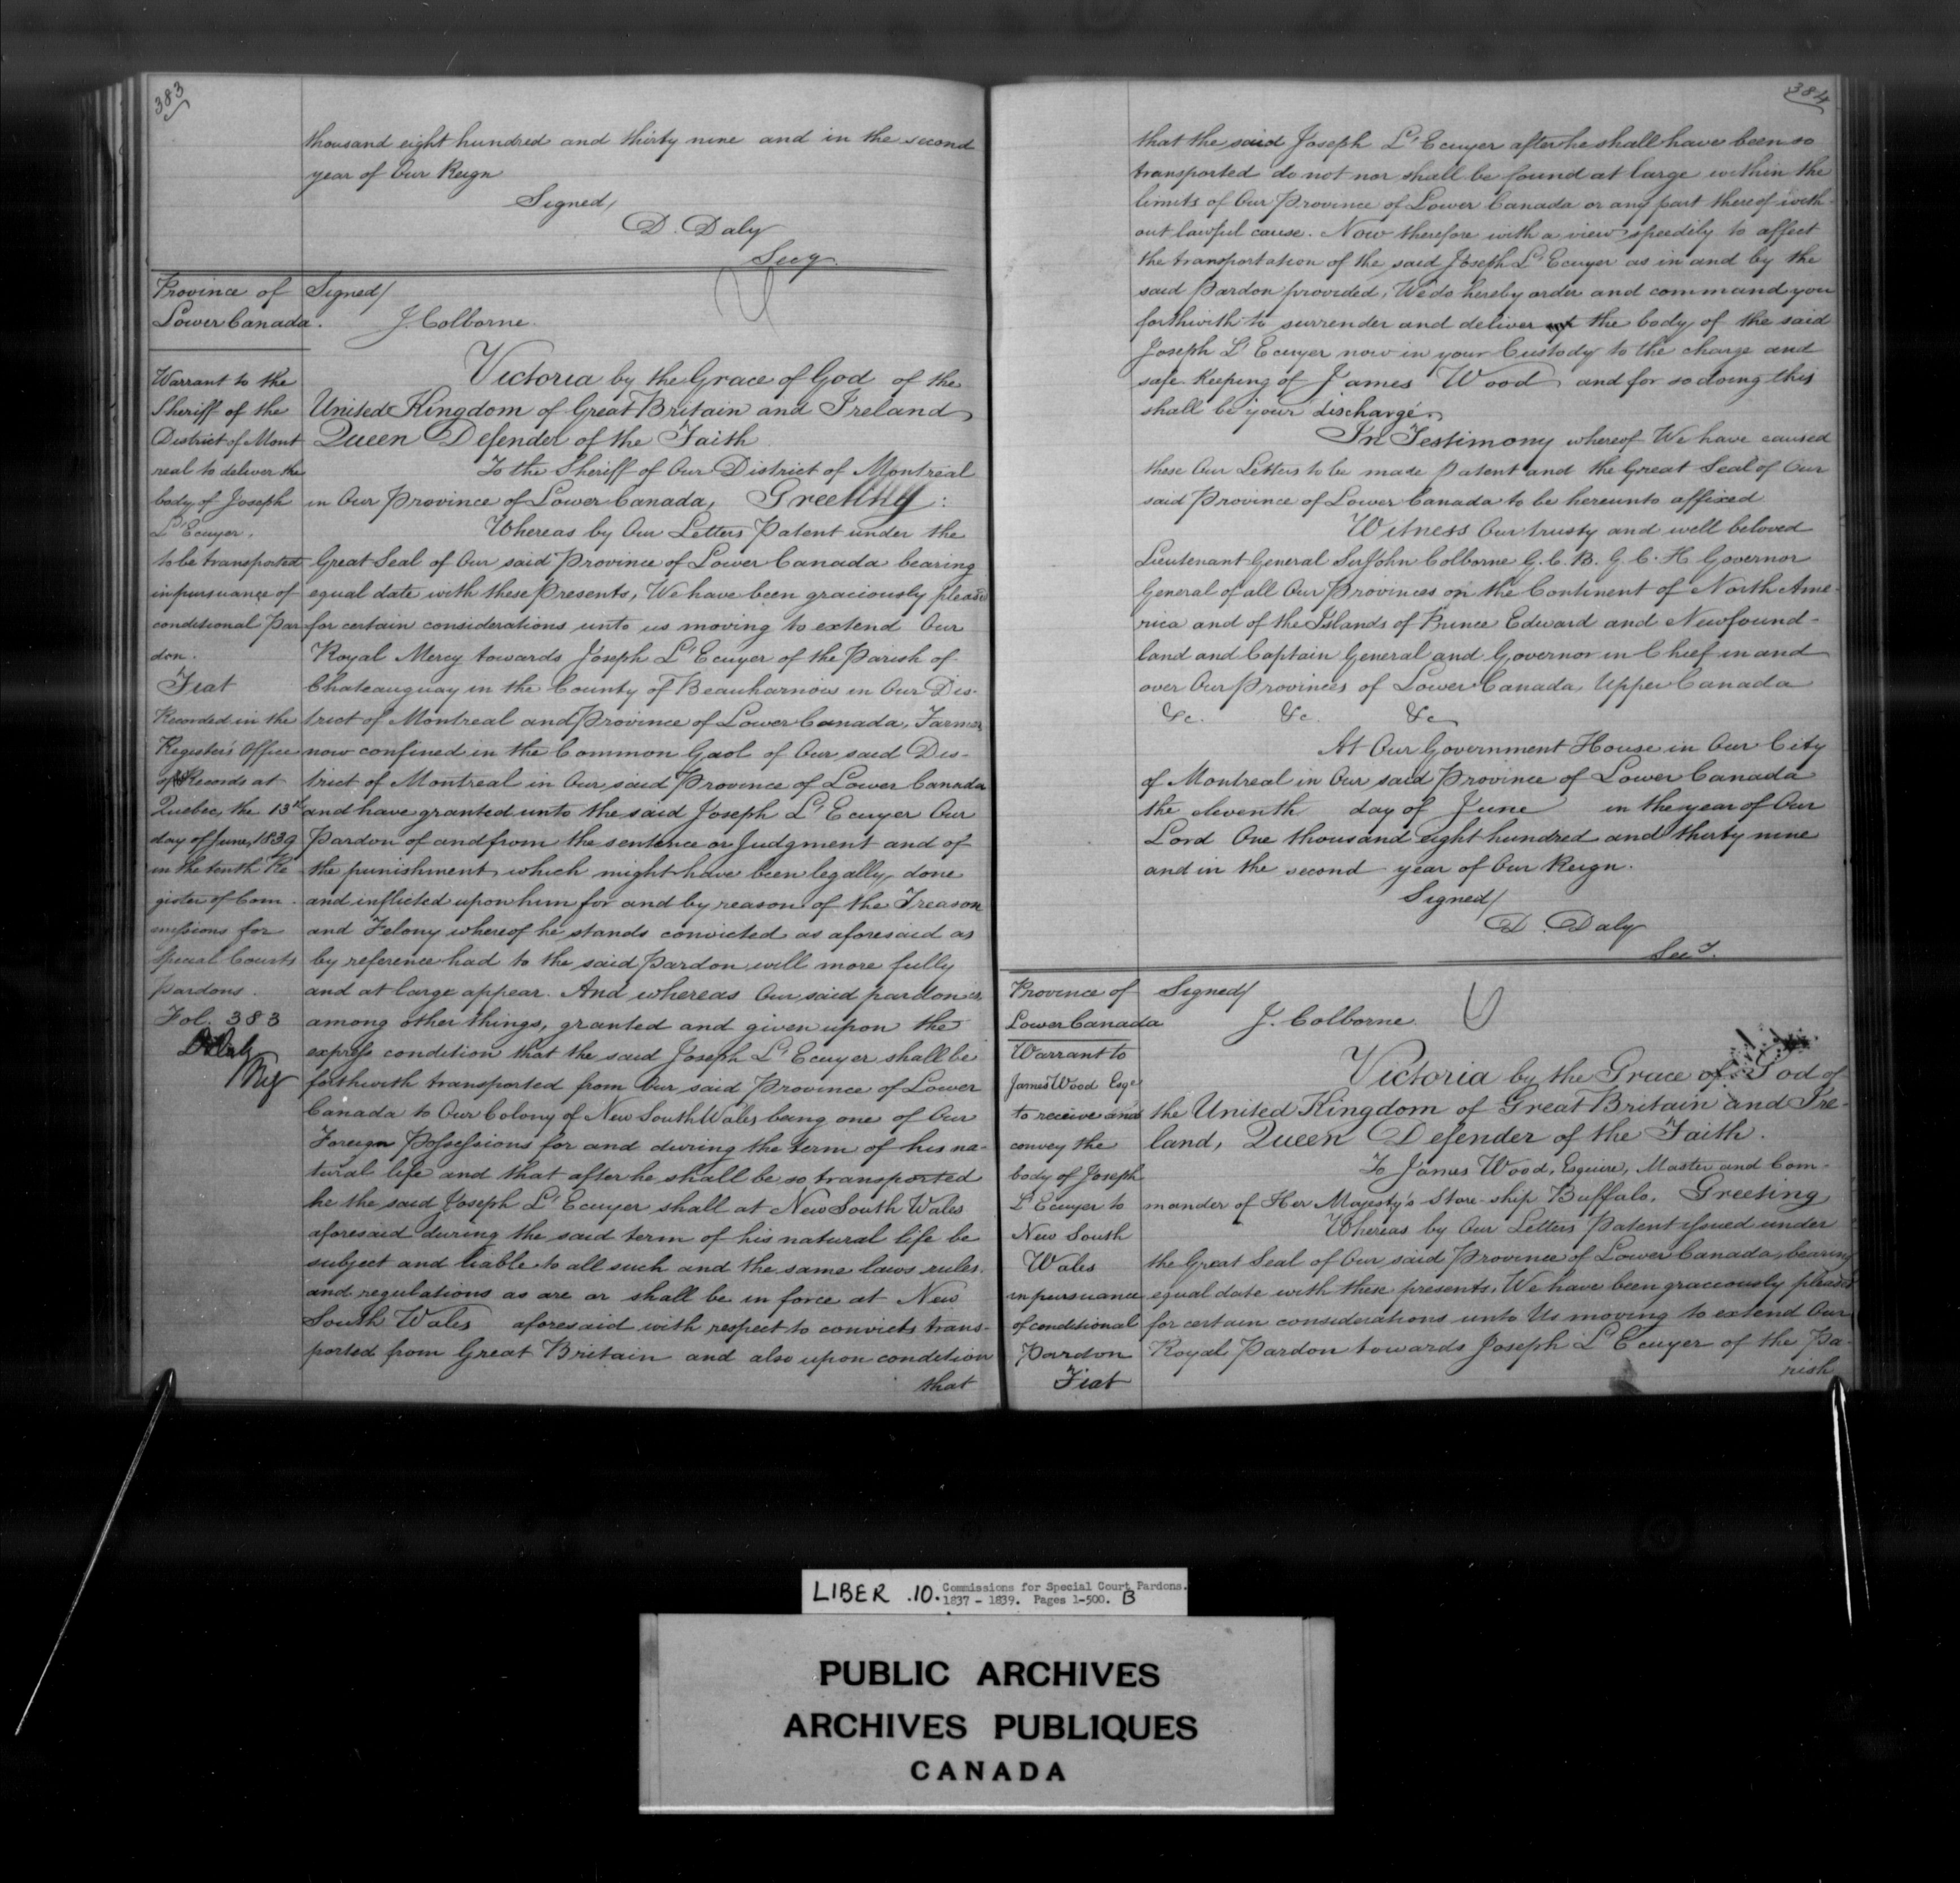 383
thousand eight hundred and thirty nine and in the second
year of Our Reign
Signed/
D. Daly
Secy.
Province of
Lower Canada.
Signed/
J. Colborne.
Warrant to the
Sheriff of the
District of Mont
real to deliver the
body of Joseph
L'Ecuyer,
to be transported
in pursuance of
conditional Par
don.
Fiat
Recorded in the
Register's Office
of Records at
Quebec, the 13th
day of June, 1839
in the tenth Re
gister of Com
missions for
Special Courts
pardons.
Fol. 383
D Daly
Reg
Victoria by the Grace of God of the
United Kingdom of Great Britain and Ireland
Queen Defender of the Faith
To the Sheriff of Our District of Montreal
in Our Province of Lower Canada, Greeting:
Whereas by Our Letters Patent under the
Great Seal of Our said Province of Lower Canada bearing
equal date with these Presents, We have been graciously pleased
for certain considerations unto us moving to extend Our
Royal Mercy towards Joseph L'Ecuyer of the Parish of
Chateauguay in the County of Beauharnois in Our Dis-
trict of Montreal and Province of Lower Canada, Farmer,
now confined in the Common Gaol of Our said Dis-
trict of Montreal in Our said Province of Lower Canada
and have granted unto the said Joseph L'Ecuyer Our
Pardon of and from the sentence or Judgment and of
the punishment which might have been legally done
and inflicted upon him for and by reason of the Treason
and Felony whereof he stands convicted as aforesaid as
by reference had to the said Pardon will more fully
and at large appear. And whereas Our said pardon is,
among other things, granted and given upon the
express condition that the said Joseph L'Ecuyer shall be
forthwith transported from Our said Province of Lower
Canada to Our Colony of New South Wales being one of Our
Foreign Possessions for and during the term of his na-
tural life and that after he shall be so transported
he the said Joseph L'Ecuyer shall at New South Wales
aforesaid during the said term of his natural life be
subject and liable to all such and the same laws rules
and regulations as are or shall be in force at New
South Wales aforesaid with respect to convicts trans-
ported from Great Britain and also upon condition
that
384
that the said Joseph L'Ecuyer after he shall have been so
transported do not nor shall be found at large within the
limits of Our Province of Lower Canada or any part thereof with-
out lawful cause. Now therefore with a view speedily to affect
the transportation of the said Joseph L'Ecuyer as in and by the
said Pardon provided, We do hereby order and command you
forthwith to surrender and deliver the body of the said
Joseph L'Ecuyer now in your Custody to the charge and
safe Keeping of James Wood and for so doing this
shall be your discharge.
In Testimony whereof We have caused
these Our Letters to be made Patent and the Great Seal of Our
said Province of Lower Canada to be hereunto affixed.
Witness Our trusty and well beloved
Lieutenant General Sir John Colborne G. C. B. G. C. H Governor
General of all Our Provinces on the Continent of North Ame-
rica and of the Islands of Prince Edward and Newfound-
land and Captain General and Governor in Chief in and
over Our Provinces of Lower Canada, Upper Canada
&c. &c. &c
At Our Government House in Our City
of Montreal in Our said Province of Lower Canada
the eleventh day of June in the year of Our
Lord One thousand eight hundred and thirty nine
and in the second year of Our Reign.
Signed/
D. Daly
Secy.
Province of
Lower Canada
Signed/
J. Colborne.
Warrant to
James Wood Esqe
to receive and
convey the
body of Joseph
L'Ecuyer to
New South
Wales
in pursuance
of conditional
Pardon
Fiat
Victoria by the Grace of God of
the United Kingdom of Great Britain and Ire-
land, Queen Defender of the Faith.
To James Wood, Esquire, Master and Com-
mander of Her Majesty's Store-ship Buffalo. Greeting
Whereas by Our Letters Patent issued under
the Great Seal of Our said Province of Lower Canada, bearing
equal date with these presents, We have been graciously pleased
for certain considerations unto Us moving to extend Our
Royal Pardon towards Joseph L'Ecuyer of the Pa-
rish
LIBER .10. Commissions for Special Court Pardons.
1837 - 1839. Pages 1-500. B
PUBLIC ARCHIVES
ARCHIVES PUBLIQUES
CANADA